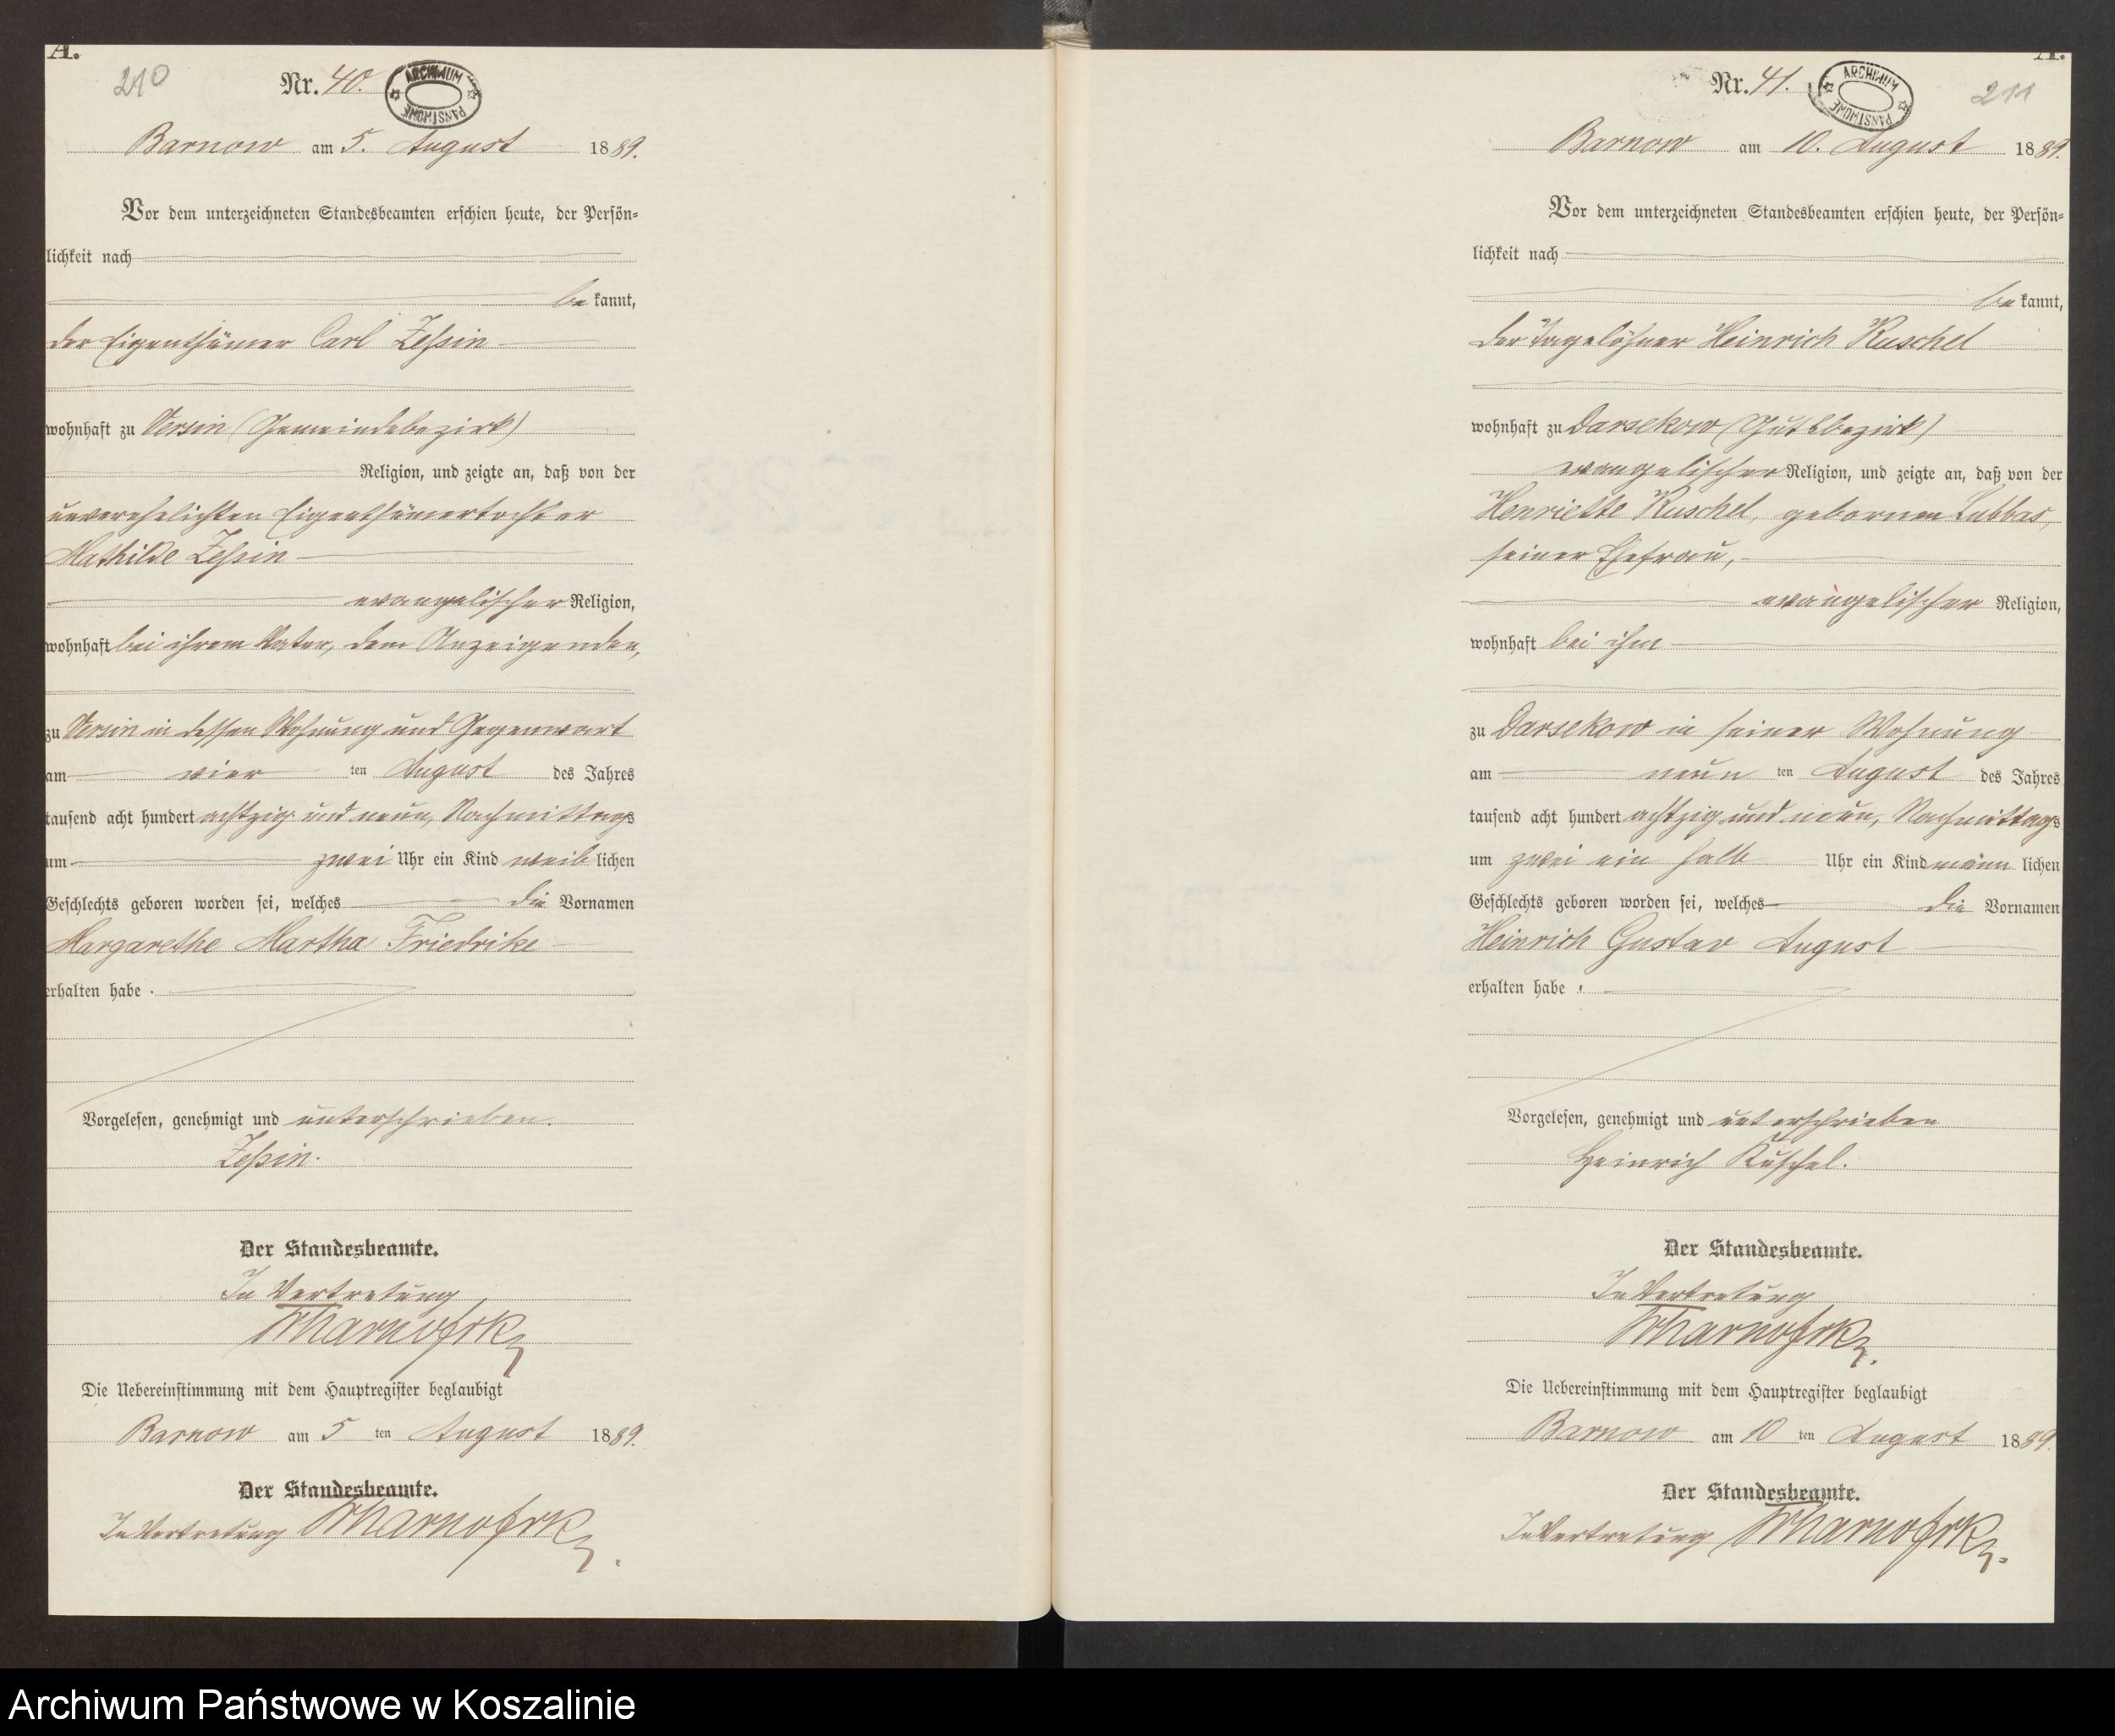 A.
210
Nr. 40.
ARCHIWUM PAŃSTWOWE
Barnow am 5. August 1889.
Vor dem unterzeichneten Standesbeamten erschien heute, der Persön-
lichkeit nach
be kannt,
der Eigenthümer Carl Zessin
wohnhaft zu Versin (Gemeindebezirk)
Religion, und zeigte an, daß von der
unverehelichten Eigenthümertochter
Mathilde Zessin
evangelischer Religion,
wohnhaft bei ihrem Vater, dem Anzeigenden,
zu Versin in dessen Wohnung und Gegenwart
am vier ten August des Jahres
tausend acht hundert achtzig und neun, Nachmittags
um zwei Uhr ein Kind weib lichen
Geschlechts geboren worden sei, welches die Vornamen
Margarethe Martha Friedrike
erhalten habe.
Vorgelesen, genehmigt und unterschrieben.
Zessin.
Der Standesbeamte.
In Vertretung
Die Uebereinstimmung mit dem Hauptregister beglaubigt
Barnow am 5 ten August 1889.
Der Standesbeamte.
In Vertretung
A.
Nr. 41.
ARCHIWUM PAŃSTWOWE
211
Barnow am 10. August 1889.
Vor dem unterzeichneten Standesbeamten erschien heute, der Persön-
lichkeit nach
be kannt,
der Tagelöhner Heinrich Kuschel
wohnhaft zu Darsekow (Gutsbezirk)
evangelischer Religion, und zeigte an, daß von der
Henriette Kuschel, gebornen Labbas,
seiner Ehefrau,
evangelischer Religion,
wohnhaft bei ihm
zu Darsekow in seiner Wohnung
am neun ten August des Jahres
tausend acht hundert achtzig und neun, Nachmittags
um zwei ein halb Uhr ein Kind männ lichen
Geschlechts geboren worden sei, welches die Vornamen
Heinrich Gustav August
erhalten habe.
Vorgelesen, genehmigt und unterschrieben
Heinrich Kuschel.
Der Standesbeamte.
In Vertretung
Die Uebereinstimmung mit dem Hauptregister beglaubigt
Barnow am 10 ten August 1889.
Der Standesbeamte.
In Vertretung
Archiwum Państwowe w Koszalinie